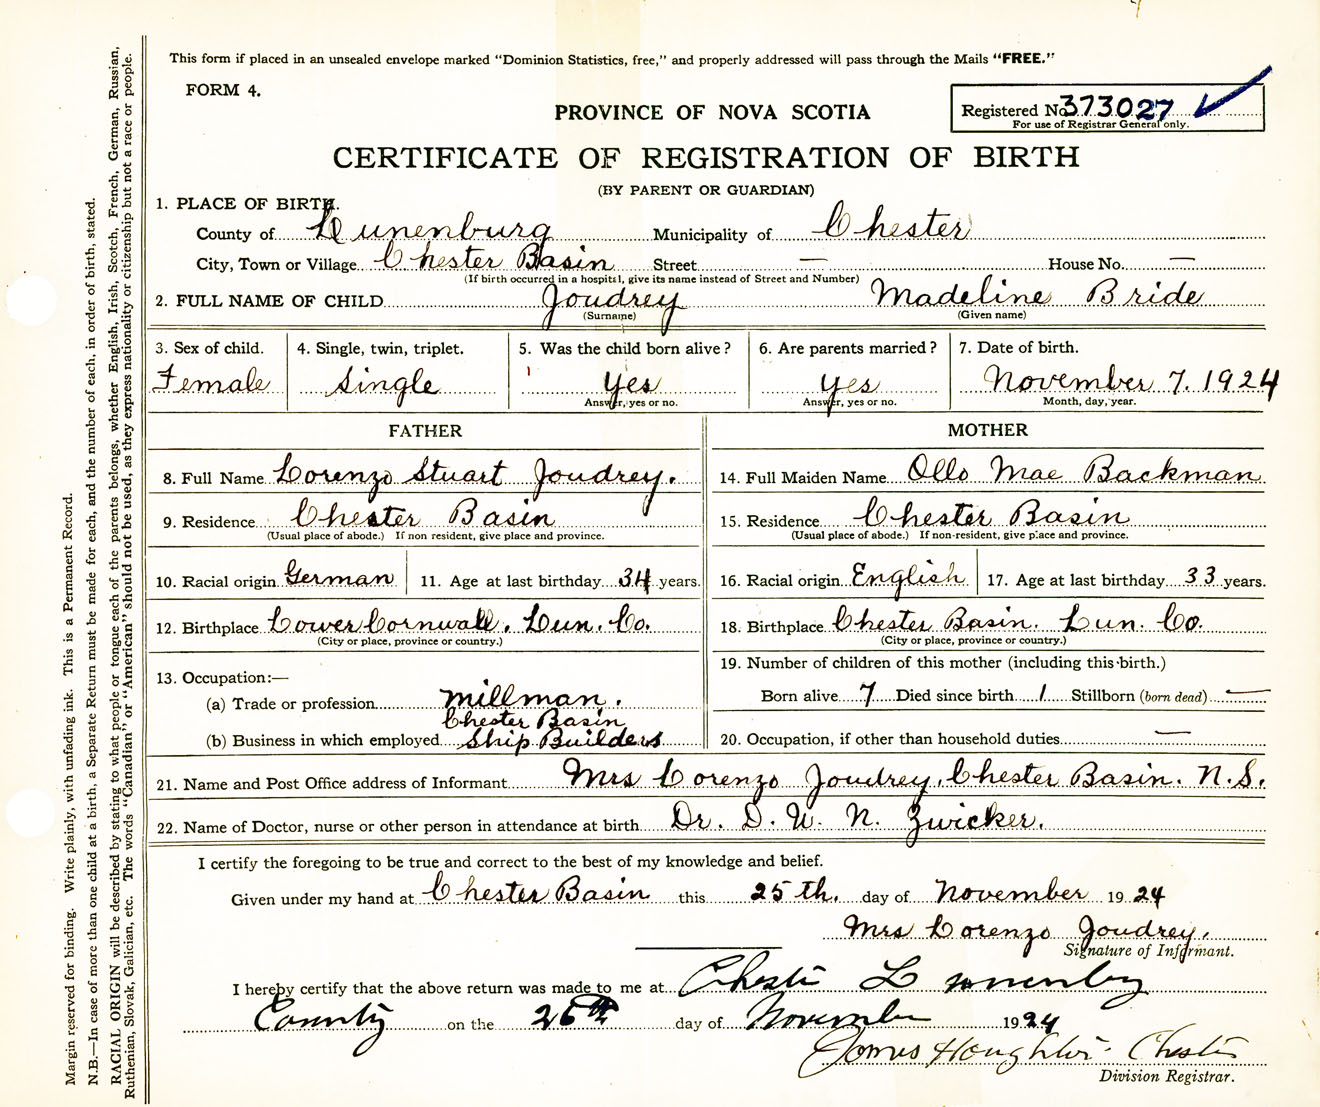 This form if placed in an unsealed envelope marked “Dominion Statistics, free,” and properly addressed will pass through the Mails “FREE.”
FORM 4.
PROVINCE OF NOVA SCOTIA
Registered No. 373027
For use of Registrar General only.
CERTIFICATE OF REGISTRATION OF BIRTH
(BY PARENT OR GUARDIAN)
1. PLACE OF BIRTH.
County of Lunenburg Municipality of Chester
City, Town or Village Chester Basin Street — House No. —
(If birth occurred in a hospital, give its name instead of Street and Number)
2. FULL NAME OF CHILD Joudrey Madeline Bride
(Surname) (Given name)
3. Sex of child. 4. Single, twin, triplet. 5. Was the child born alive? 6. Are parents married? 7. Date of birth.
Female Single Yes Yes November 7. 1924
Answer, yes or no. Answer, yes or no. Month, day, year.
FATHER MOTHER
8. Full Name Lorenzo Stuart Joudrey. 14. Full Maiden Name Ollo Mae Backman
9. Residence Chester Basin 15. Residence Chester Basin
(Usual place of abode.) If non resident, give place and province. (Usual place of abode.) If non-resident, give place and province.
10. Racial origin German 11. Age at last birthday 34 years. 16. Racial origin English 17. Age at last birthday 33 years.
12. Birthplace Lower Cornwall. Lun. Co. 18. Birthplace Chester Basin. Lun. Co.
(City or place, province or country.) (City or place, province or country.)
13. Occupation:— 19. Number of children of this mother (including this birth.)
(a) Trade or profession millman. Born alive 7 Died since birth 1 Stillborn (born dead) —
Chester Basin
(b) Business in which employed Ship Builders 20. Occupation, if other than household duties —
21. Name and Post Office address of Informant Mrs Lorenzo Joudrey. Chester Basin. N.S.
22. Name of Doctor, nurse or other person in attendance at birth Dr. D. W. N. Zwicker.
I certify the foregoing to be true and correct to the best of my knowledge and belief.
Given under my hand at Chester Basin this 25th. day of November 1924
Mrs Lorenzo Joudrey.
Signature of Informant.
I hereby certify that the above return was made to me at Chester
County on the 26th day of November 1924
James Chester
Division Registrar.
Margin reserved for binding. Write plainly, with unfading ink. This is a Permanent Record.
N.B.—In case of more than one child at a birth, a Separate Return must be made for each, and the number of each, in order of birth, stated.
RACIAL ORIGIN will be described by stating to what people or tongue each of the parents belongs, whether English, Irish, Scotch, French, German, Russian,
Ruthenian, Slovak, Galician, etc. The words “Canadian” or “American” should not be used, as they express nationality or citizenship but not a race or people.